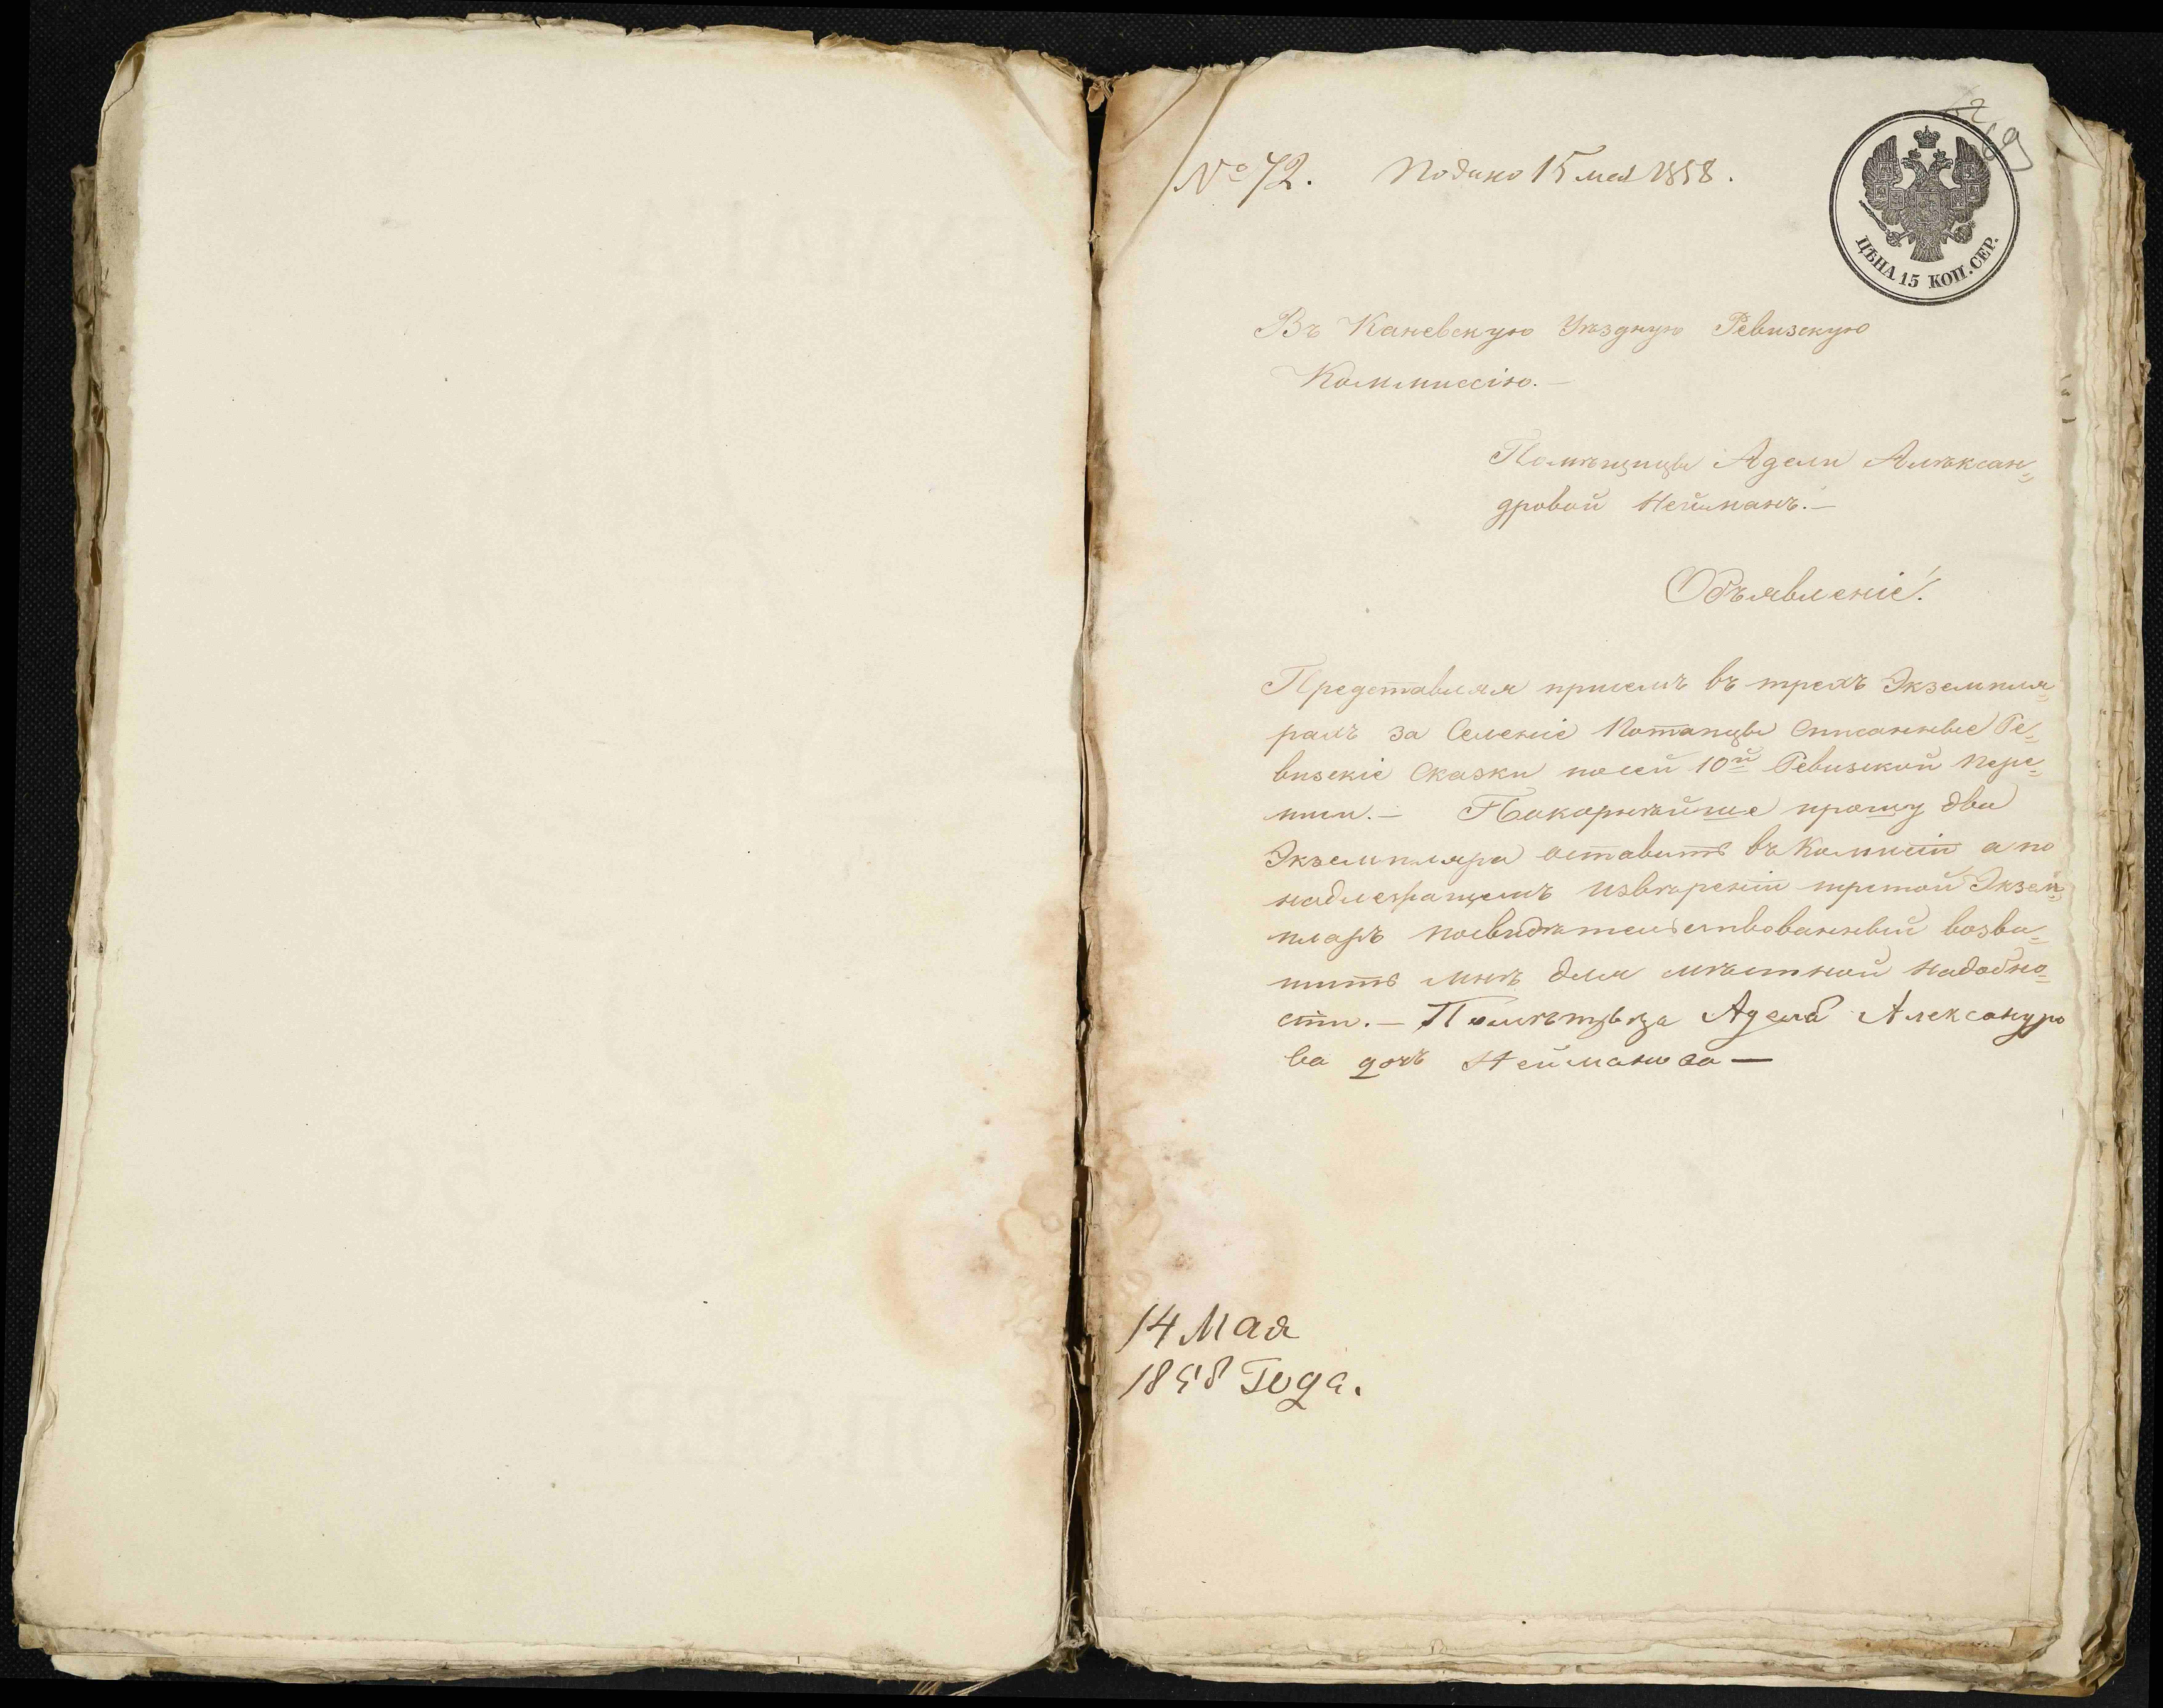 № 72. Подано 15 мая 1858.
ЦѢНА 15 КОП. СЕР.
Въ Каневскую Уѣздную Ревизскую
Коммиссію.—
Помѣщицы Адели Алѣксан=
дровой Нейманъ.—
Объявленіе!
Представляя присемъ въ трехъ Экземпля=
рахъ за Селеніе Потапцы Списанные Ре=
визскіе Сказки посей 10й Ревизской пере=
писи.— Покорнѣйше прошу два
Экземпляра оставить въ Комисіи а по
надлежащемъ извѣреніи третой Экзем=
пларъ посвидѣтельствованный возва=
тить мнѣ для мѣстной надобно=
сти.— Помѣщица Адель Александро
ва дочъ Нейманова—
14 Мая
1858 Года.